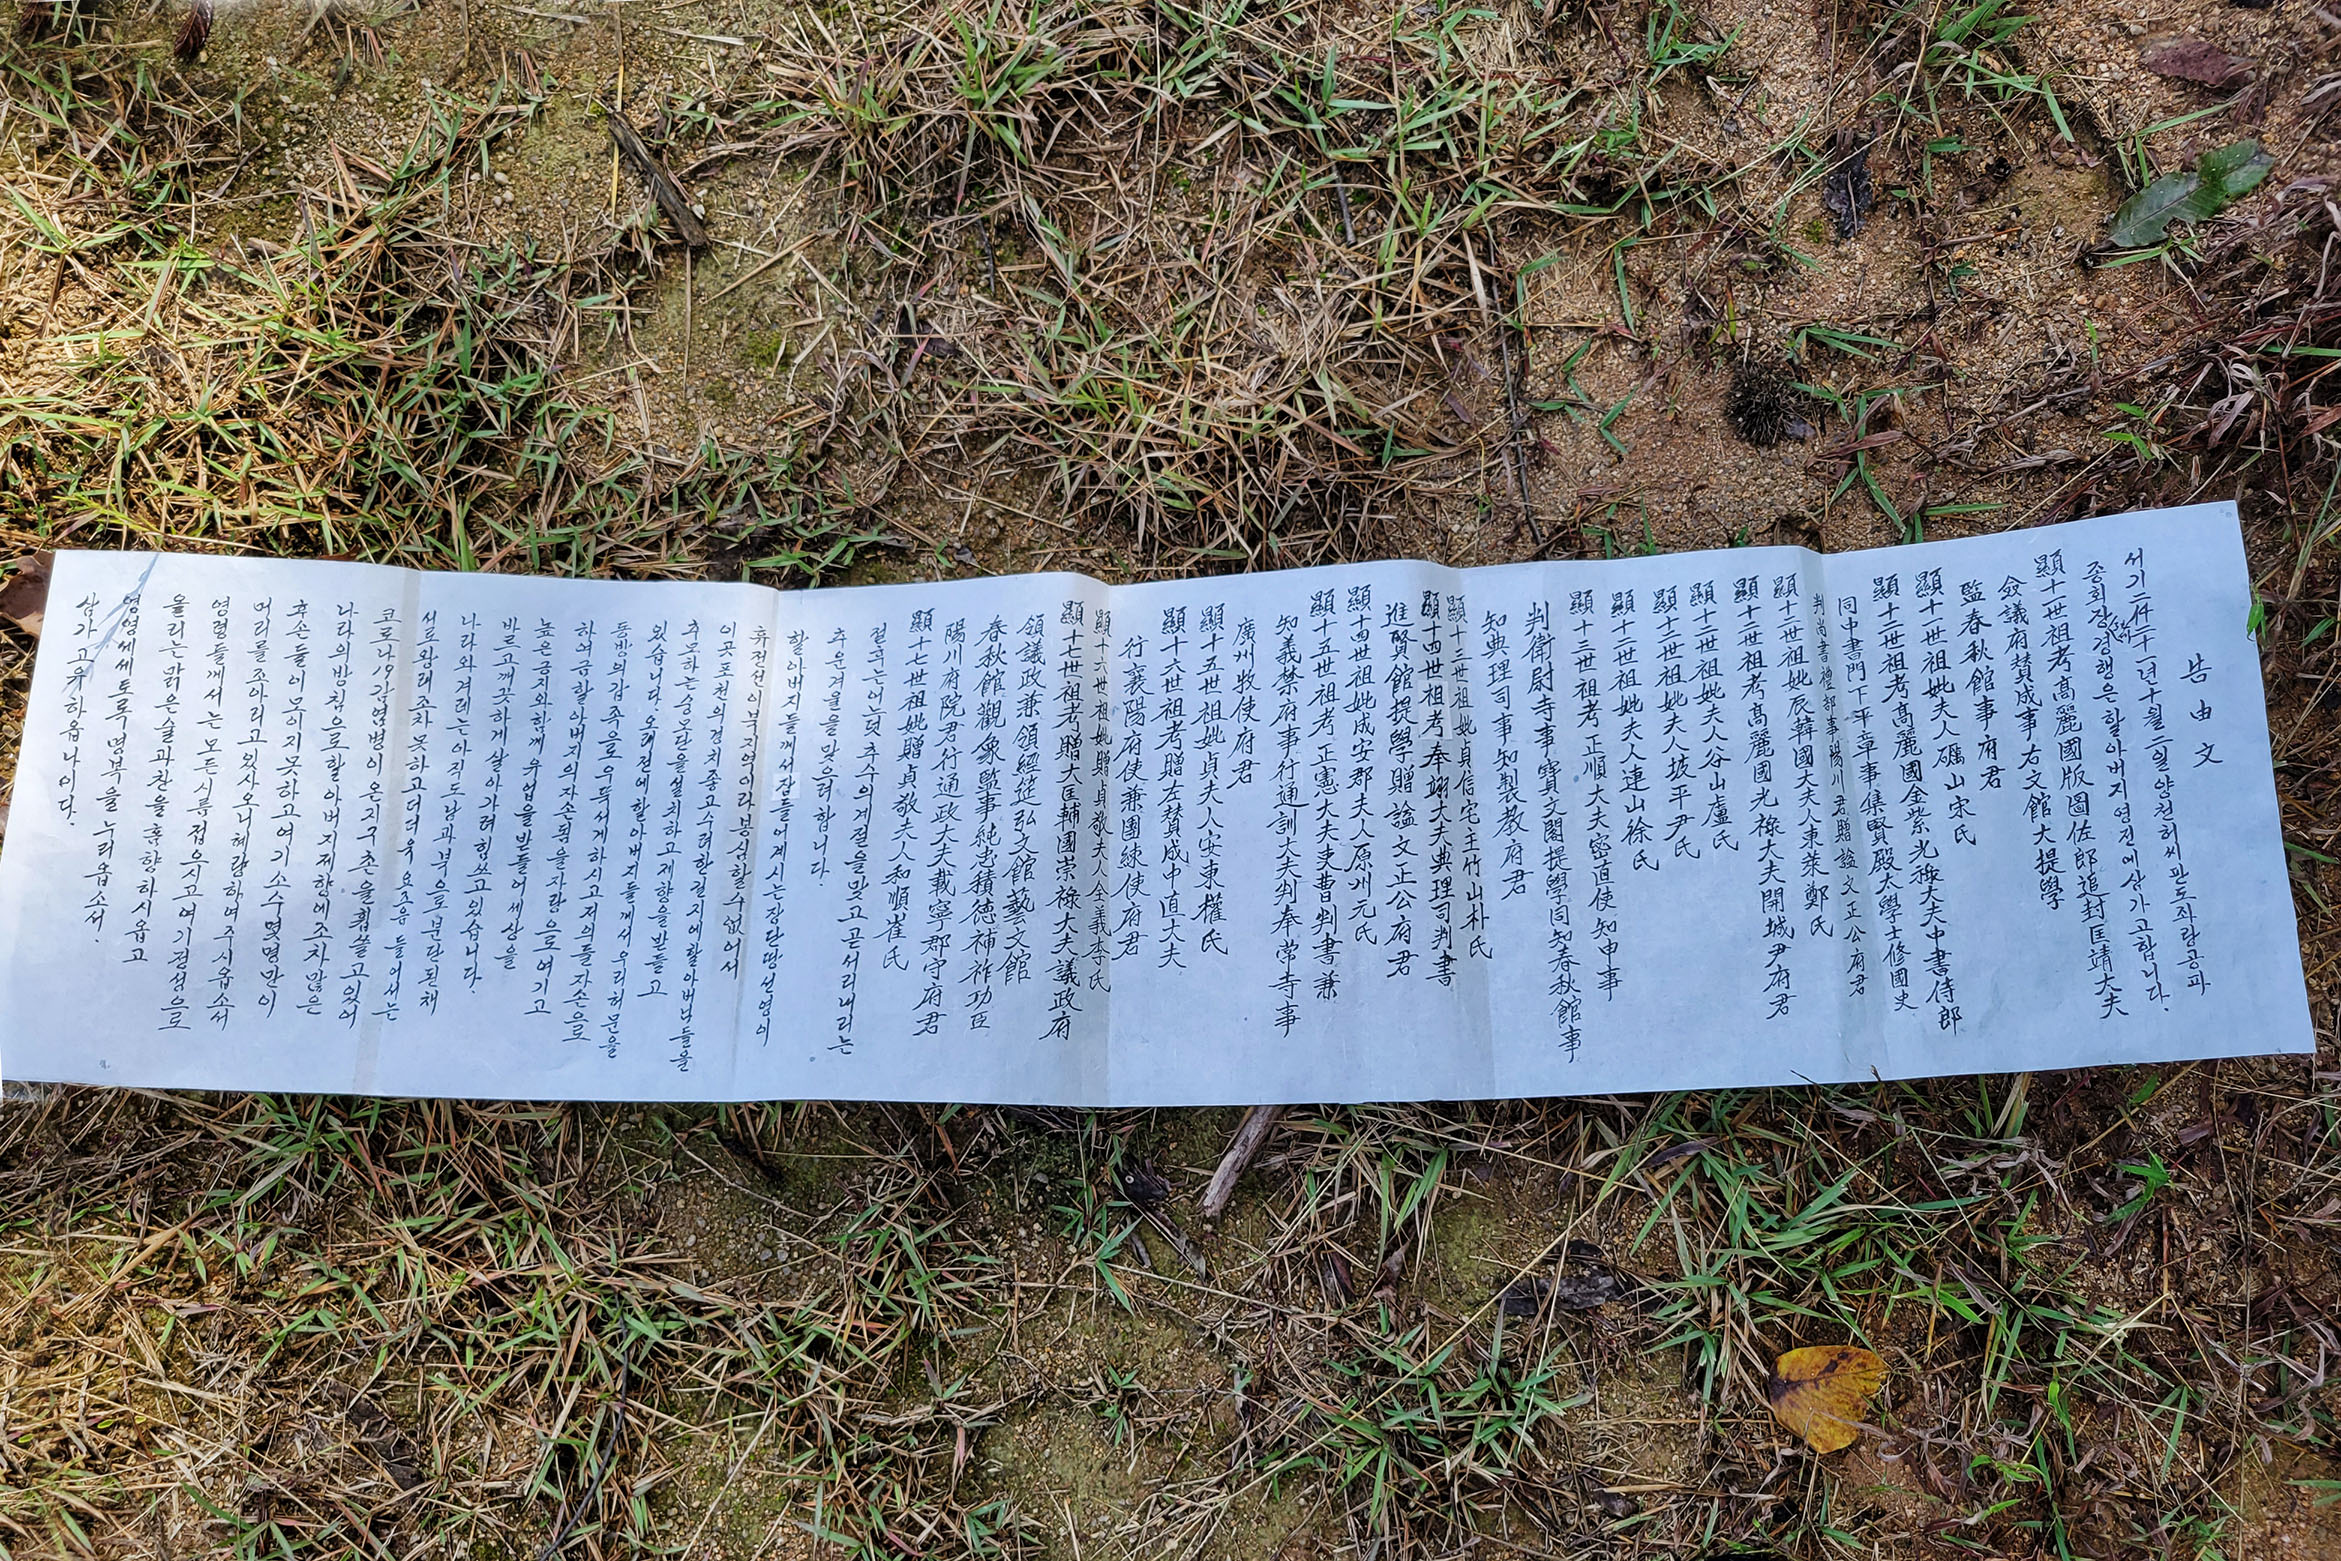 告由文
서기二仟二十一년十월二일양천허씨판도좌랑공파
종회장경행은할아버지영전에삼가고합니다.
顯十一世祖考高麗國版圖佐郎追封匡靖大夫
僉議府賛成事右文館大提學
監春秋館事府君
顯十一世祖妣夫人礪山宋氏
顯十二世祖考高麗國金紫光祿大夫中書侍郎
同中書門下平章事集賢殿太學士修國史
判尚書禮部事陽川君贈諡文正公府君
顯十二世祖妣辰韓國大夫人東萊鄭氏
顯十二世祖考高麗國光祿大夫開城尹府君
顯十二世祖妣夫人谷山盧氏
顯十二世祖妣夫人坡平尹氏
顯十二世祖妣夫人連山徐氏
顯十三世祖考正順大夫密直使知申事
判衛尉寺事寶文閣提學同知春秋館事
知典理司事知製教府君
顯十三世祖妣貞信宅主竹山朴氏
顯十四世祖考奉翊大夫典理司判書
進賢館提學贈諡文正公府君
顯十四世祖妣咸安郡夫人原州元氏
顯十五世祖考正憲大夫吏曹判書兼
知義禁府事行通訓大夫判奉常寺事
廣州牧使府君
顯十五世祖妣貞夫人安東權氏
顯十六世祖考贈左賛成中直大夫
行襄陽府使兼團練使府君
顯十六世祖妣贈貞敬夫人全義李氏
顯十七世祖考贈大匡輔國崇祿大夫議政府
領議政兼領經筵弘文館藝文館
春秋館觀象監事純忠積德補祚功臣
陽川府院君行通政大夫載寧郡守府君
顯十七世祖妣贈貞敬夫人和順崔氏
절후는어느덧추수의계절을맞고곧서리내리는
추운겨울을맞으려합니다.
할아버지들께서잠들어계시는장단땅선영이
휴전선이북지역이라봉심할수없어서
이곳포천의경치좋고수려한길지에할아버님들을
추모하는숭모단을설치하고제향을받들고
있습니다. 오래전에할아버지들께서우리허문을
동방의갑족으로우뚝서게하시고저의들자손으로
하여금할아버지의자손됨을자랑으로여기고
높은긍지와함께위업을받들어세상을
바르고깨끗하게살아가려힘쓰고있습니다.
나라와겨레는아직도남과북으로분단된채
서로왕래조차못하고더더욱요즈음들어서는
코로나19감염병이온지구촌을휩쓸고있어
나라의방침으로할아버지제향에조차많은
후손들이모이지못하고여기소수몇명만이
머리를조아리고있사오니혜량하여주시옵소서
영령들께서는모든시류접으시고여기정성으로
올리는맑은술과찬을흠향하시옵고
영영세세토록명복을누리옵소서.
삼가고유하옵나이다.